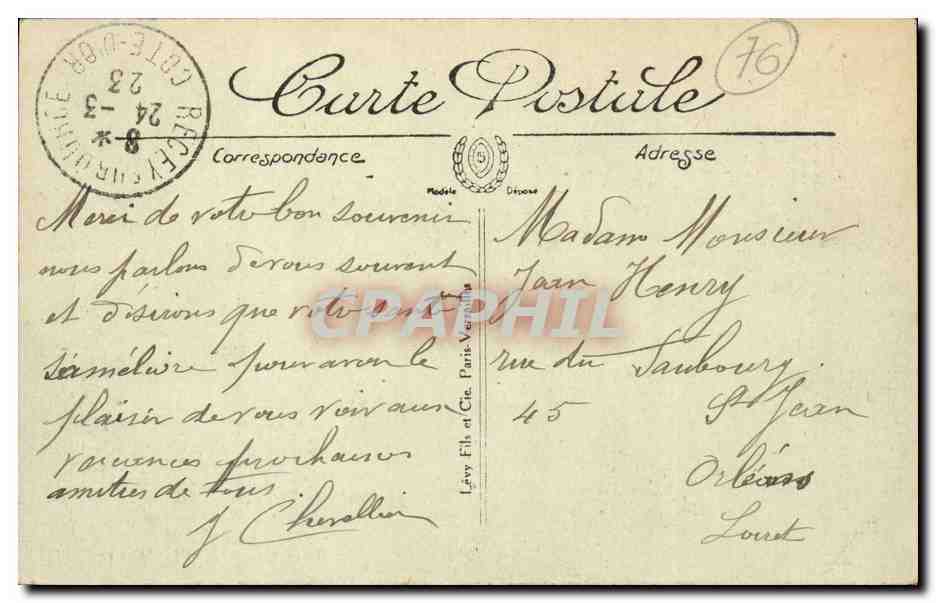 Carte Postale
76
RECEY SUR OURCE
COTE-D'OR
8 *
24 -3
23
Correspondance
Adresse
5
Modèle Déposé
Merci de votre bon souvenir
nous parlons de vous souvent
et désirons que votre santé
s'améliore pour avoir le
plaisir de vous voir aux
vacances prochaines
amitiés de tous
J Chevallier
Lévy Fils et Cie, Paris-Versailles
Madam Monsieur
Jean Henry
rue du Faubourg
45 St Jean
Orléans
Loiret
CPAPHIL